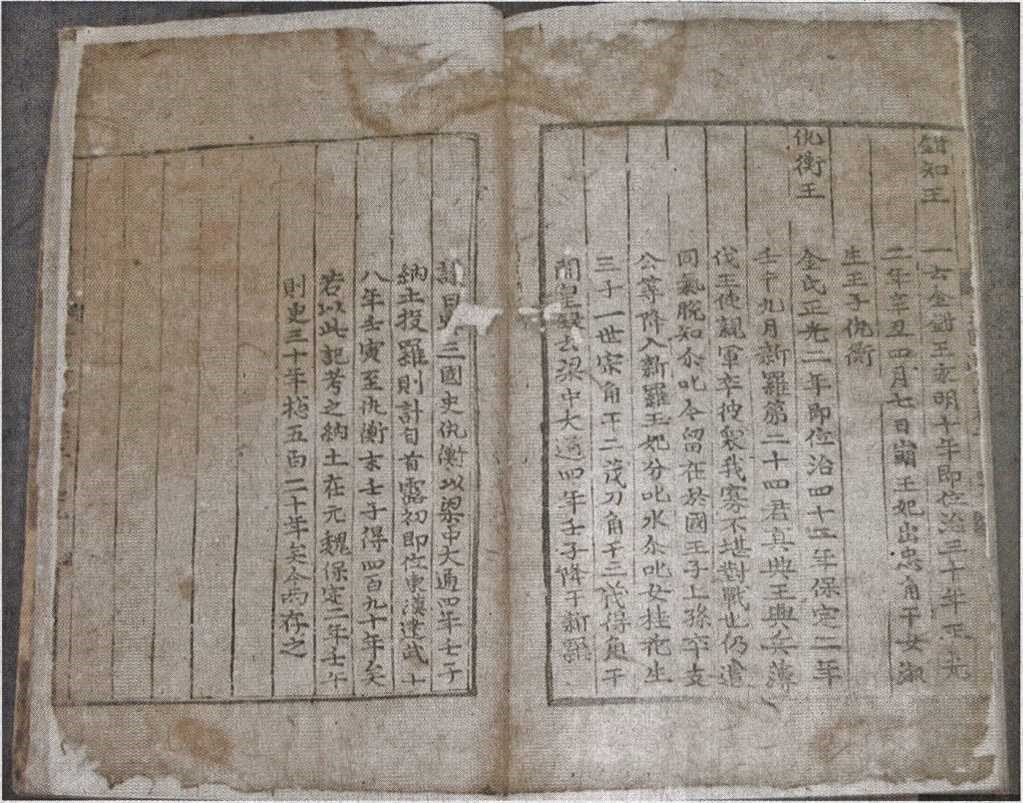 鉗知王 一云金鉗王永明十年即位治三十年正光
二年辛丑四月七日崩王妃出忠角干女淑
生王子仇衡
仇衡王 金氏正光二年即位治四十二年保定二年
壬午九月新羅第二十四君真興王興兵薄
伐王使親軍卒彼衆我寡不堪對戰也仍遣
同氣脫知尒叱今留在於國王子上孫卒支
公等降入新羅王妃分叱水尒叱女桂花生
三子一世宗角干二茂刀角干三茂得角干
開皇録云梁中大通四年壬子降于新羅
議曰 三國史仇衡以梁中大通四年壬子
納土投羅則計自首露初即位東漢建武十
八年壬寅至仇衡末壬子得四百九十年矣
若以此記考之納土在元魏保定二年壬午
則更三十年揔五百二十年矣今兩存之